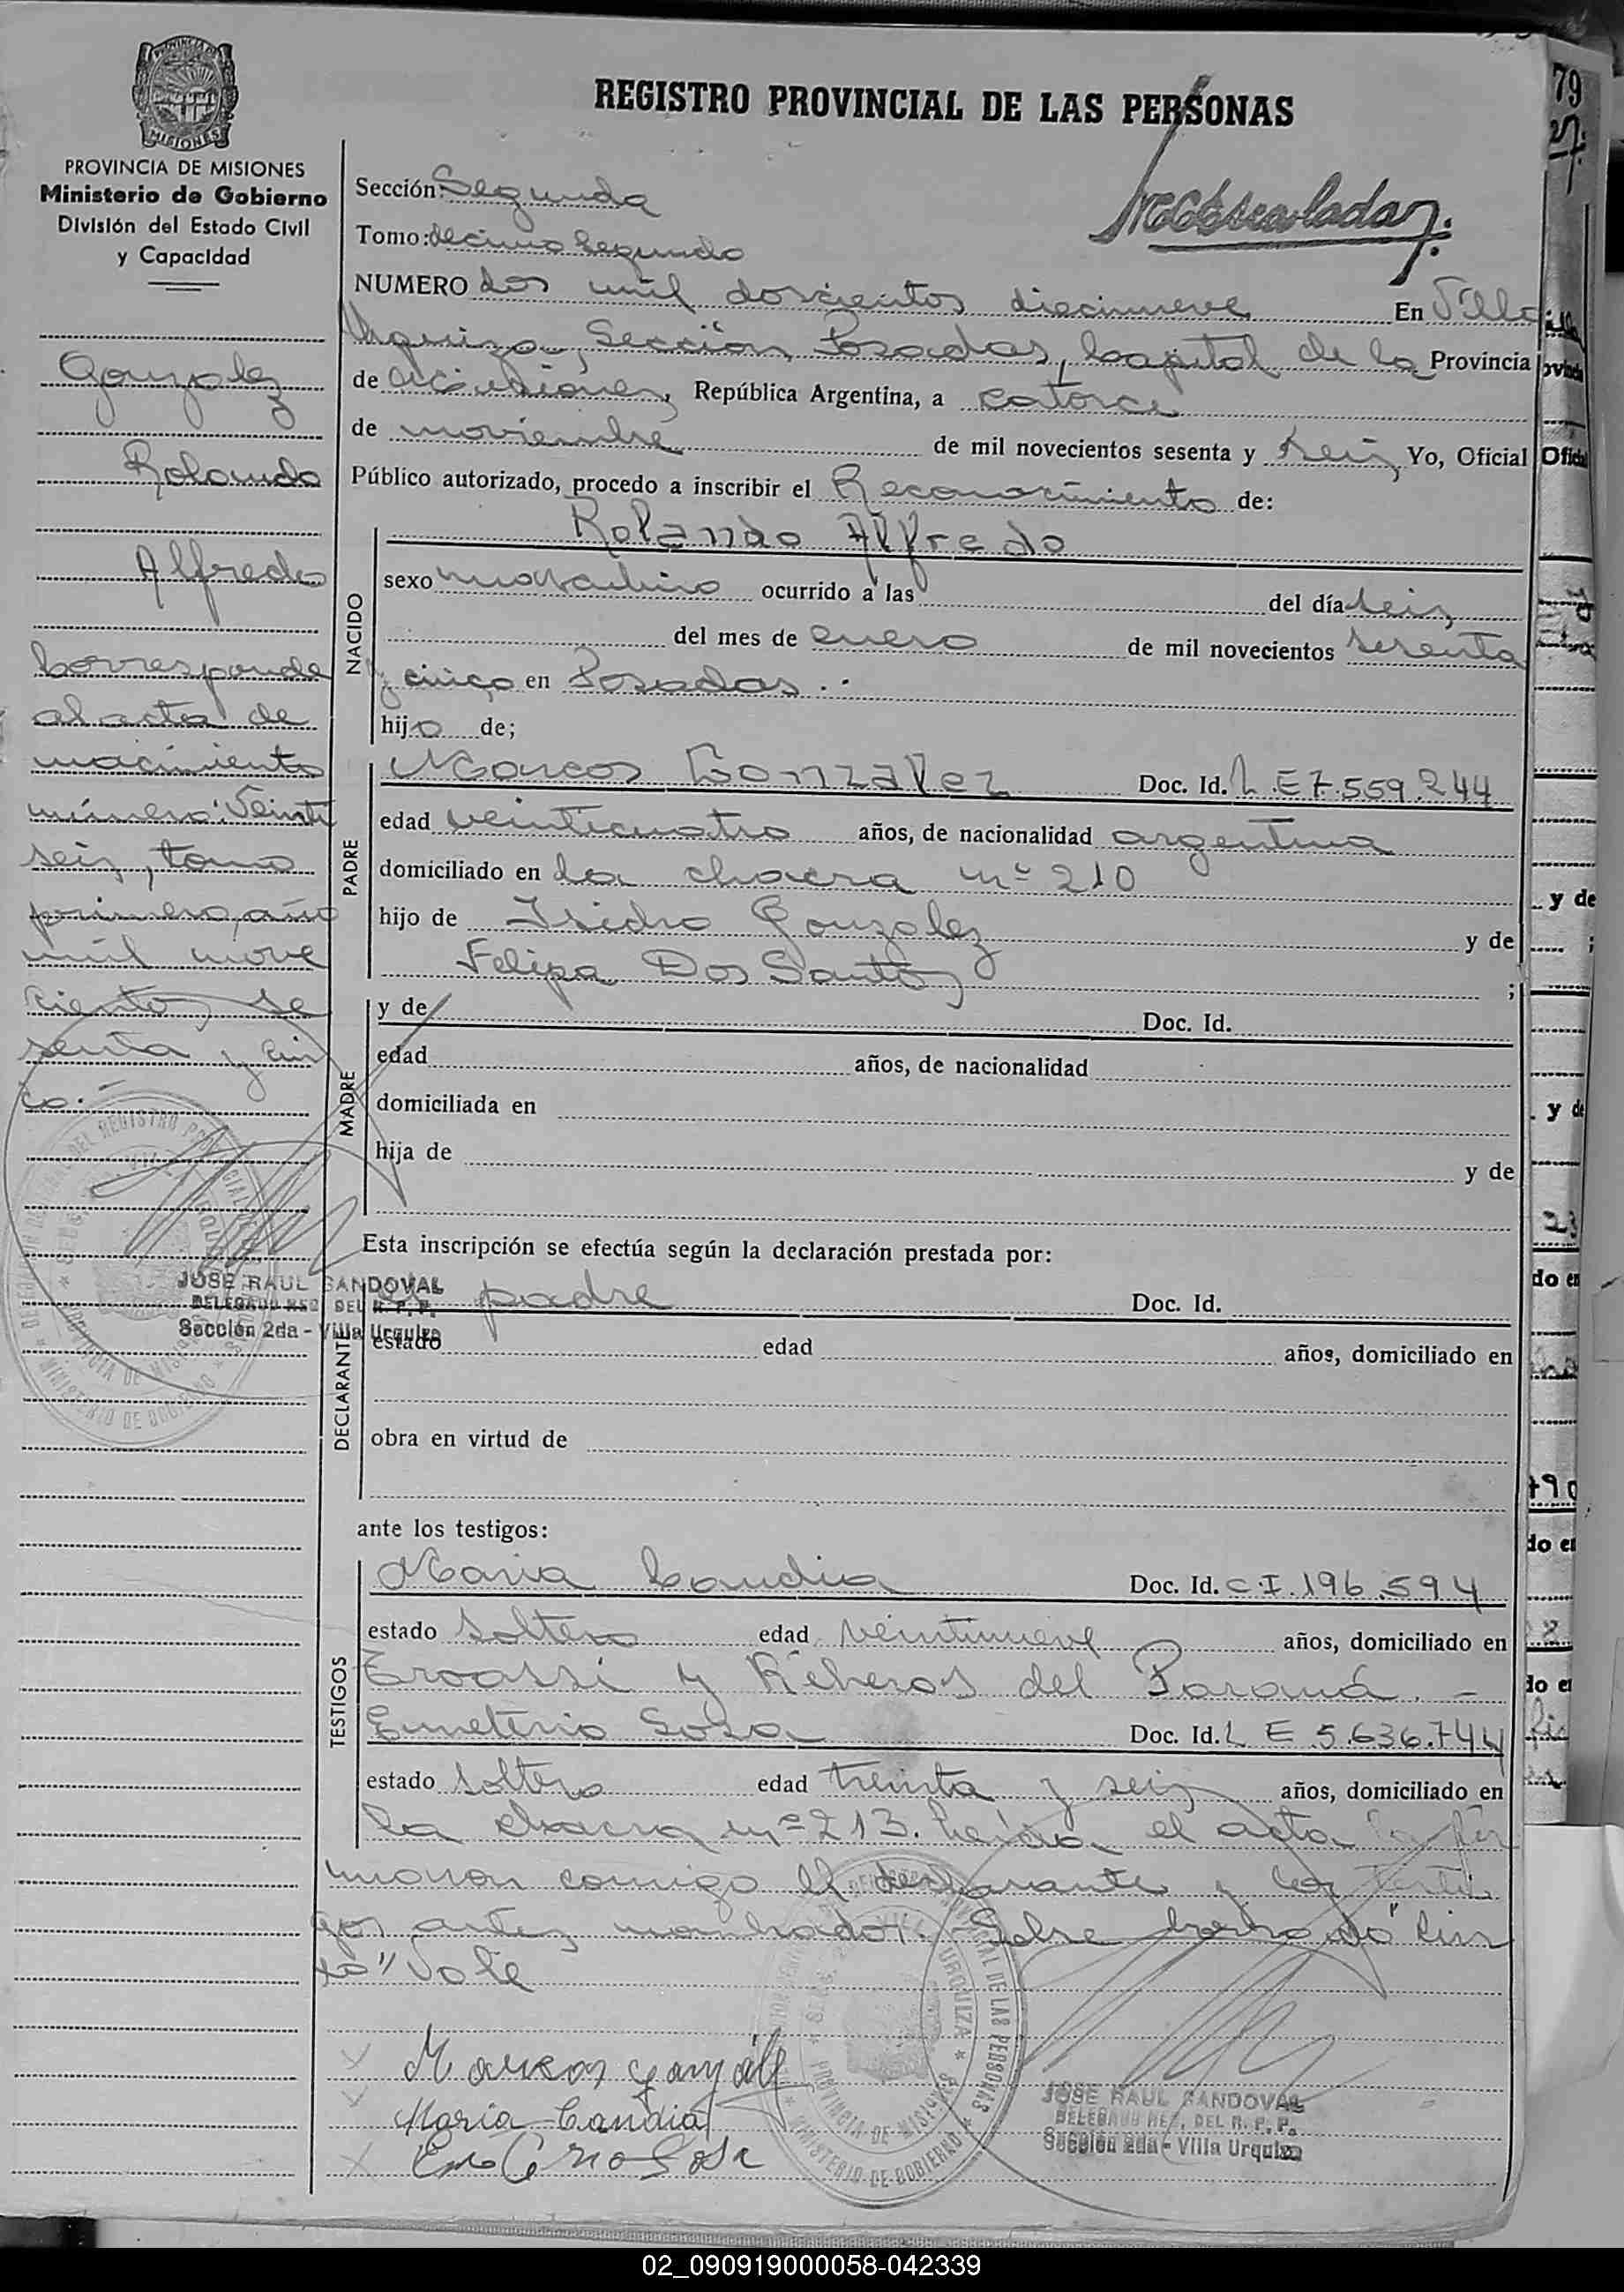 REGISTRO PROVINCIAL DE LAS PERSONAS
79
MISIONES
PROVINCIA DE MISIONES
Ministerio de Gobierno
División del Estado Civil
y Capacidad
Gonzalez
Rolando
Alfredo
Corresponde
al acta de
nacimiento
número: Veinti
seis, tomo
primero, año
mil nove
cientos se
senta y cin
co.-
JOSE RAUL SANDOVAL
DELEGADO REG. DEL R. P. P.
Sección 2da - Villa Urquiza
Sección: Segunda
Tomo: decimo Segundo
NUMERO dos mil doscientos diecinueve En Villa
Urquiza, Sección Posadas, Capital de la Provincia
de Misiones, República Argentina, a catorce
de noviembre de mil novecientos sesenta y seis, Yo, Oficial
Público autorizado, procedo a inscribir el Reconocimiento de:
NACIDO
Rolando Alfredo
sexo masculino ocurrido a las del día seis
del mes de enero de mil novecientos sesenta
y cinco en Posadas.-
hijo de;
PADRE
Marcos Gonzalez Doc. Id. L.E 7.559.244
edad veinticuatro años, de nacionalidad argentina
domiciliado en la chacra nº 210
hijo de Isidro Gonzalez y de
Felipa Dos Santos ;
MADRE
y de Doc. Id.
edad años, de nacionalidad
domiciliada en
hija de y de
Esta inscripción se efectúa según la declaración prestada por:
DECLARANTE
el padre Doc. Id.
estado edad años, domiciliado en
obra en virtud de
ante los testigos:
TESTIGOS
Maria Candia Doc. Id. C.I. 196.594
estado soltera edad veintinueve años, domiciliado en
y Riberas del Paraná.-
Emeterio Sosa Doc. Id. L E 5.636.744
estado soltero edad treinta y seis años, domiciliado en
la chacra nº 213. Leída el acta la fir
maron conmigo el declarante y los testi
gos antes nombrados. Sobre borrado "cin
co" Vale
Marcos Gonzalez
Maria Candia
Emeterio Sosa
JOSE RAUL SANDOVAL
DELEGADO REG. DEL R. P. P.
Sección 2da - Villa Urquiza
02_090919000058-042339